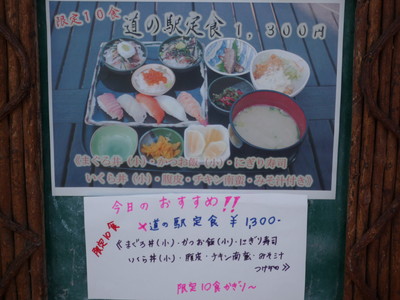 限定10食
道の駅定食 1,300円
《まぐろ丼(小)・かつお飯(小)・にぎり寿司
いくら丼(小)・腹皮・チキン南蛮・みそ汁付き》
今日のおすすめ!!
道の駅定食 ¥1,300-
限定10食
《まぐろ丼(小)・かつお飯(小)・にぎり寿司
いくら丼(小)・腹皮・チキン南蛮・みそ汁
つけてゐ》
限定10食かぎり〜